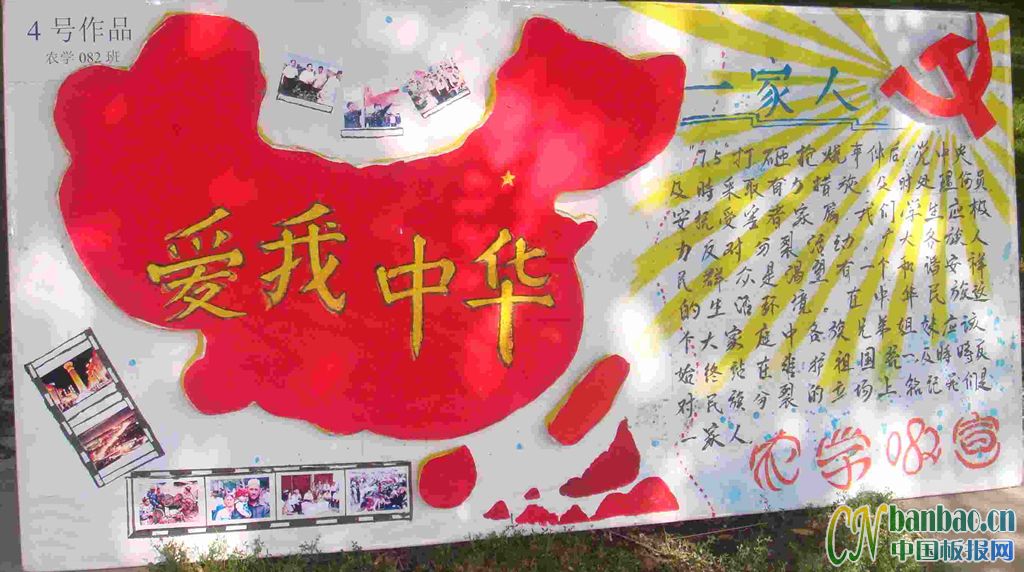 4 号作品
农学 082 班
爱我中华
一家人
"7.5"打砸抢烧事件后,党中央
及時采取有力措施,及时处理伤員
安抚受害者家属,我们学生应极
力反对分裂活动,广大各族人
民群众是渴望有一个和谐安祥
的生活环境。在中华民族这
个大家庭中各族兄弟姐妹应该
始终站在維护祖国統一反時時反
对民族分裂的立场上铭记我们是
一家人
农学082宣
CNbanbao.cn
中国板报网